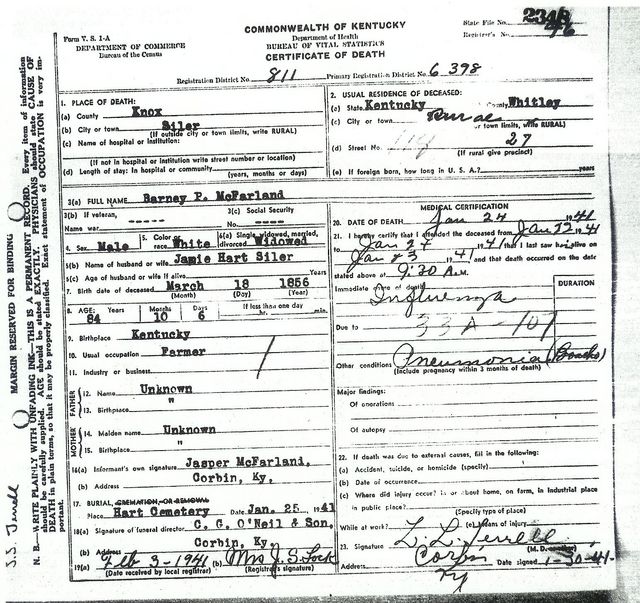 COMMONWEALTH OF KENTUCKY
State File No. 2348
Form V. S. 1-A
Department of Health
Registrar's No. 76
DEPARTMENT OF COMMERCE
BUREAU OF VITAL STATISTICS
Bureau of the Census
CERTIFICATE OF DEATH
Registration District No. 811 Primary Registration District No. 6398
1. PLACE OF DEATH:
(a) County Knox
(b) City or town Siler
(If outside city or town limits, write RURAL)
(c) Name of hospital or institution:
(If not in hospital or institution write street number or location)
(d) Length of stay: In hospital or community
(years, months or days)
2. USUAL RESIDENCE OF DECEASED:
(a) State Kentucky County Whitley
(c) City or town Rural
or town limits, write RURAL)
(d) Street No. 27
(If rural give precinct)
(e) If foreign born, how long in U. S. A.? years
3(a) FULL NAME Barney P. McFarland
3(b) If veteran,
Name war -----
3(c) Social Security
No. ----
4. Sex Male 5. Color or race White 6(a) Single, widowed, married, divorced Widowed
6(b) Name of husband or wife Jamie Hart Siler
6(c) Age of husband or wife if alive Years
7. Birth date of deceased March 18 1856
(Month) (Day) (Year)
8. AGE: Years Months Days If less than one day
84 10 6 hr. min.
9. Birthplace Kentucky
10. Usual occupation Farmer
11. Industry or business
FATHER
12. Name Unknown
13. Birthplace "
MOTHER
14. Maiden name Unknown
15. Birthplace "
16(a) Informant's own signature Jasper McFarland,
(b) Address Corbin, Ky.
17. BURIAL, CREMATION, OR REMOVAL
Place Hart Cemetery Date Jan. 25 1941
18(a) Signature of funeral director C. G. O'Neil & Son,
(b) Address Corbin, Ky.
19(a) Feb 3-1941 (b) Mrs J. S. Lock
(Date received by local registrar) (Registrar's signature)
MEDICAL CERTIFICATION
20. DATE OF DEATH Jan 24 1941
21. I hereby certify that I attended the deceased from Jan 22 1941
to Jan 24 1941 that I last saw him alive on
Jan 23 1941 and that death occurred on the date
stated above at 9:30 A.M.
Immediate cause of death DURATION
Influenza
Due to 33A-107
Other conditions Pneumonia (Broncho)
(Include pregnancy within 3 months of death)
Major findings:
Of operations
Of autopsy
22. If death was due to external causes, fill in the following:
(a) Accident, suicide, or homicide (specify)
(b) Date of occurrence
(c) Where did injury occur? In or about home, on farm, in industrial place
in public place?
(Specify type of place)
While at work? (e) Means of injury
23. Signature L. L. Terrell
(M. D. or other)
Address Corbin Date signed 1-30-41
Ky
MARGIN RESERVED FOR BINDING
N. B.—WRITE PLAINLY WITH UNFADING INK—THIS IS A PERMANENT RECORD. Every item of information
should be carefully supplied. AGE should be stated EXACTLY. PHYSICIANS should state CAUSE OF
DEATH in plain terms, so that it may be properly classified. Exact statement of OCCUPATION is very im-
portant.
S.S. Terrell